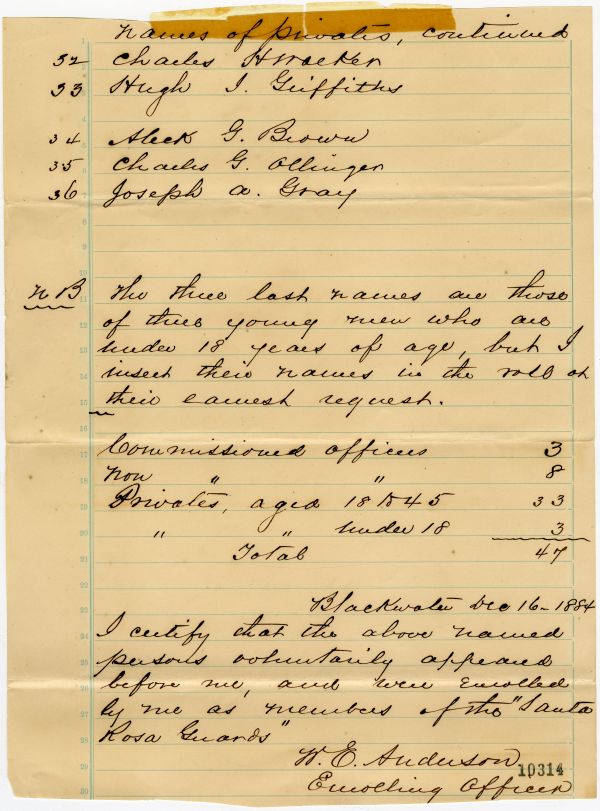 names of privates, continued
32 Charles H
33 Hugh I. Griffiths
34 Aleck G. Brown
35 Charles G. Ollinger
36 Joseph A. Gray
N B The three last names are those
of three young men who are
under 18 years of age, but I
insert their names in the roll at
their earnest request.
Commissioned officers 3
Non " " 8
Privates, aged 18 to 45 33
" " under 18 3
Total 47
Blackwater Dec 16 - 1884
I certify that the above named
persons voluntarily appeared
before me, and were Enrolled
by me as members of the "Santa
Rosa Guards"
W. E. Anderson
10314
Enrolling Officer